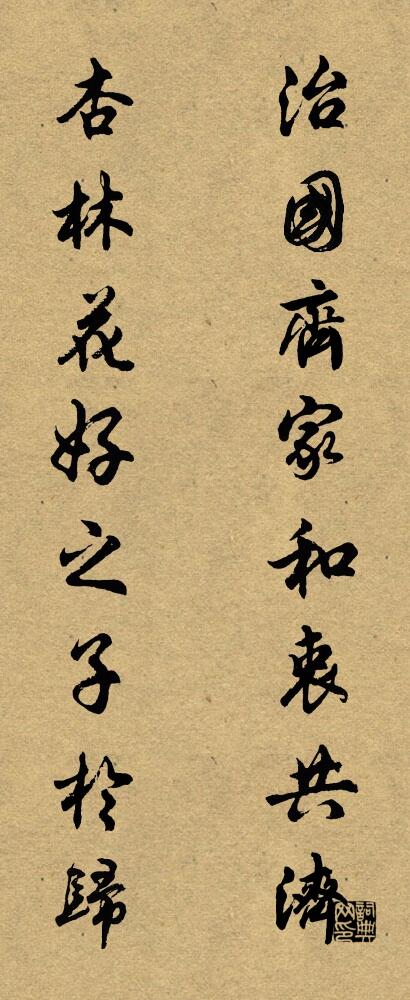 治國齊家和衷共濟
杏林花好之子於歸
詞典
網印